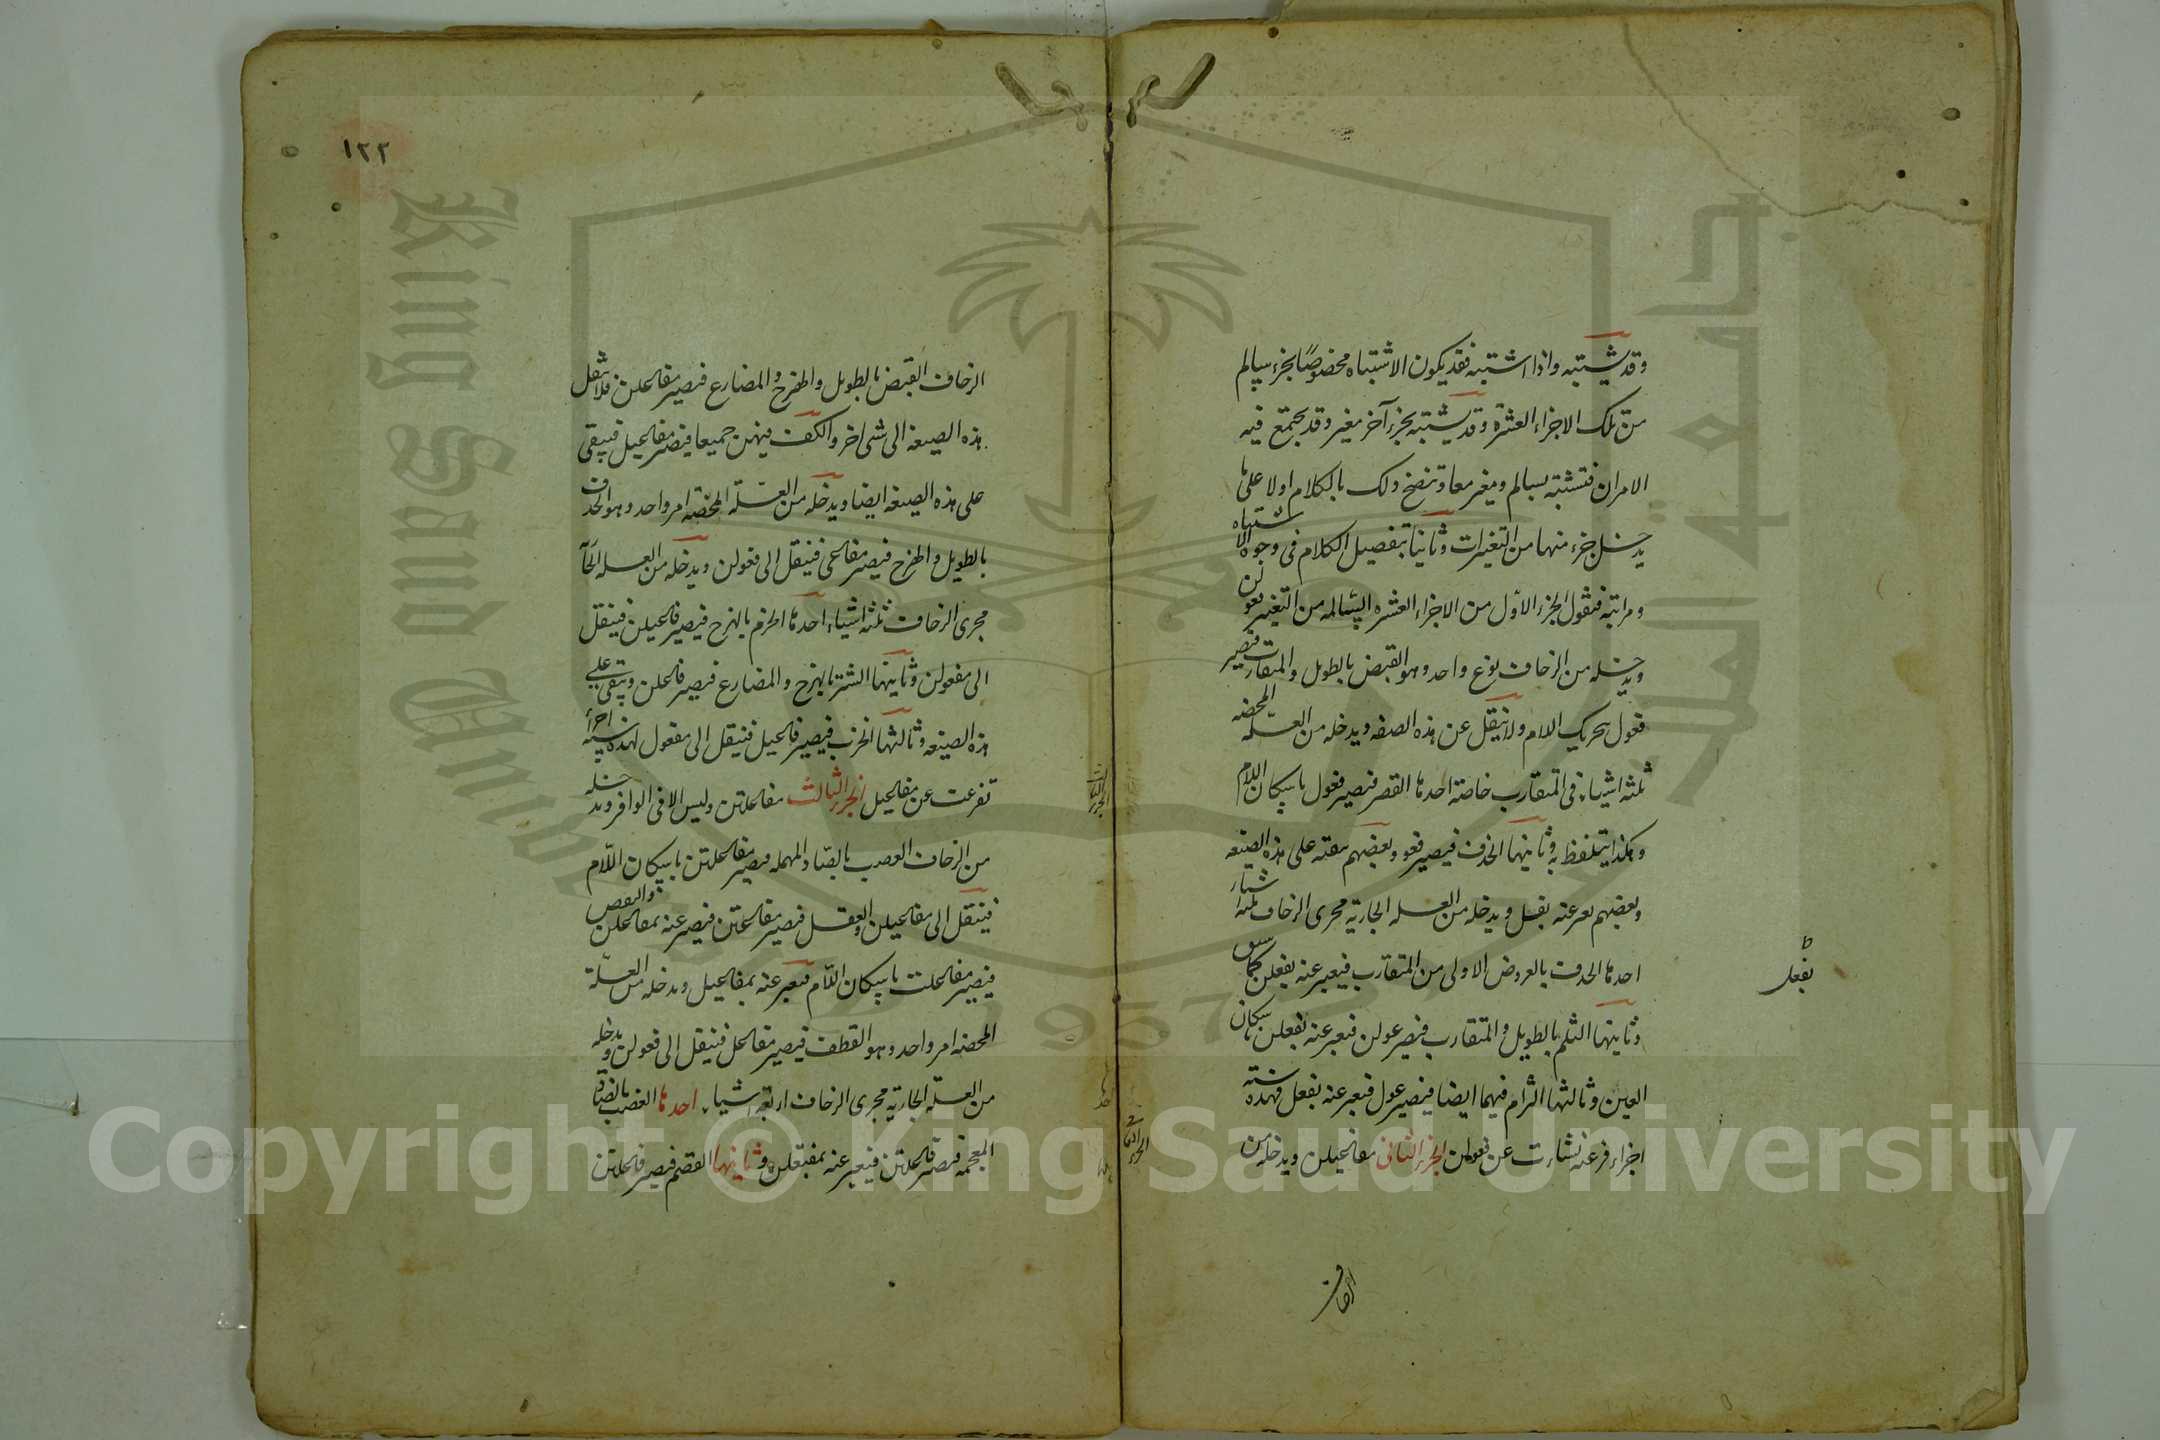 وقد يشتبه واذا اشتبه فقد يكون الاشتباه مخصوصًا بجزء سالم
من تلك الاجزاء العشرة وقد يشتبه بجزء آخر مغير وقد يجتمع فيه
الامران فتشتبه بسالم ومغير معا وتتضح ذلك بالكلام اولا على ما
يدخل جزء منها من التغيرات وثانيا بتفصيل الكلام فى وجوه الاشتباه
ومراتبه فنقول الجزء الاول من الاجزاء العشره السالمه من التغير فعولن
ويدخله من الزحاف نوع واحد وهو القبض بالطويل والمتقارب فتصير
فعول بتحريك اللام ولا ينقل عن هذه الصفه ويدخله من العلة المحضه
ثلثه اشياء فى المتقارب خاصة احدها القصر فيصير فعول باسكان اللام
وهكذا يتلفظ به وثانيها الحذف فيصير فعو وبعضهم يبقيه على هذه الصيغه
وبعضهم يعبر عنه بفعل ويدخله من العله الجاريه مجرى الزحاف ثلثه اشيآء
احدها الحذف بالعروض الاولى من المتقارب فيعبر عنه بفعل كما سبق
بفعل
وثانيها الثلم بالطويل والمتقارب فيصير عولن فيعبر عنه بفعلن باسكان
العين وثالثها الثرام فيهما ايضا فيصير عول فيعبر عنه بفعل فهذه ستة
اجزاء فرعيه نشاءت عن فعولن الجزء الثانى مفاعيلن ويدخله من
الزحاف
الجزء الثانى
١٢٢
الزحاف القبض بالطويل والهزج والمضارع فيصير مفاعلن فلا تنقل
هذه الصيغه الى شى اخر والكف فيهن جميعا فيصير مفاعيل فيبقى
على هذه الصيغه ايضا ويدخله من العلّة المحضّه امر واحد وهو الحذف
بالطويل والهزج فيصير مفاعى فينقل الى فعولن ويدخله من العله الجآ
مجرى الزحاف ثلثه اشياء احدها الخرم بالهزج فيصير فاعيلن فينقل
الى مفعولن وثانيها الشتر بالهزج والمضارع فيصير فاعلن ويبقى على
هذه الصيغه وثالثها الخرب فيصير فاعيل فينقل الى مفعول فهذه سته اجزاء
تفرعت عن مفاعيل الجزء الثالث مفاعلتن وليس الا فى الوافر ويدخله
الجزء الثالث
من الزحاف العصب بالصّاد المهمله فيصير مفاعلتن باسكان اللّام
فينقل الى مفاعيلن والعقل فيصير مفاعتن فيصير عنه بمفاعلن والنقص
فيصير مفاعلت باسكان اللّام فيعبر عنه بمفاعيل ويدخله من العلّة
المحضه امر واحد وهو القطف فيصير مفاعل فينقل الى فعولن ويدخله
من العلّه الجاريه مجرى الزحاف اربعه اشياء احدها العضب بالضاد
المعجمه فيصير فاعلتن فيعبر عنه بمفتعلن وثانيها القصم فيصير فاعلتن